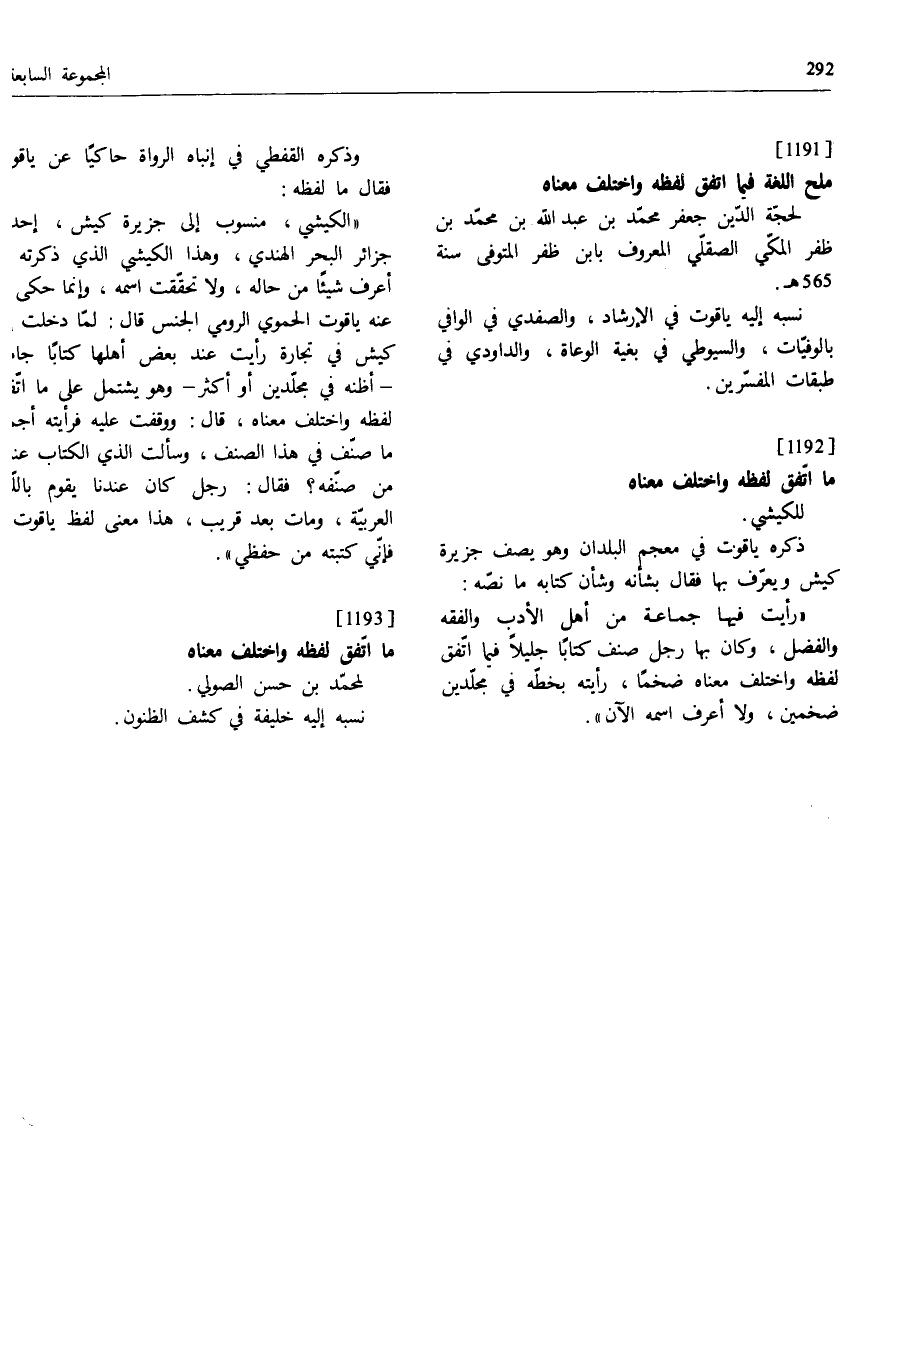 292
المجموعة السابعة
[1191]
ملح اللغة فيما اتفق لفظه واختلف معناه
لحجّة الدّين جعفر محمّد بن عبد الله بن محمّد بن
ظفر المكّي الصقلّي المعروف بابن ظفر المتوفى سنة
565هـ.
نسبه إليه ياقوت في الإرشاد ، والصفدي في الوافي
بالوفيّات ، والسيوطي في بغية الوعاة ، والداودي في
طبقات المفسّرين.
[1192]
ما اتّفق لفظه واختلف معناه
للكيشي.
ذكره ياقوت في معجم البلدان وهو يصف جزيرة
كيش ويعرّف بها فقال بشأنه وشأن كتابه ما نصّه :
«رأيت فيها جماعة من أهل الأدب والفقه
والفضل ، وكان بها رجل صنف كتابًا جليلاً فيما اتّفق
لفظه واختلف معناه ضخمًا ، رأيته بخطّه في مجلّدين
ضخمين ، ولا أعرف اسمه الآن».
وذكره القفطي في إنباه الرواة حاكيًا عن
فقال ما لفظه :
«الكيشي ، منسوب إلى جزيرة كيش ،
جزائر البحر الهندي ، وهذا الكيشي الذي ذكرته
أعرف شيئًا من حاله ، ولا تحقّقت اسمه ، وإنما حكى
عنه ياقوت الحموي الرومي الجنس قال : لمّا دخلت
كيش في تجارة رأيت عند بعض أهلها كتابًا
– أظنه في مجلّدين أو أكثر – وهو يشتمل على ما
لفظه واختلف معناه ، قال : ووقفت عليه فرأيته
ما صنّف في هذا الصنف ، وسألت الذي الكتاب
من صنّفه؟ فقال : رجل كان عندنا يقوم
العربيّة ، ومات بعد قريب ، هذا معنى لفظ ياقوت
فإنّي كتبته من حفظي».
[1193]
ما اتّفق لفظه واختلف معناه
لمحمّد بن حسن الصولي.
نسبه إليه خليفة في كشف الظنون.